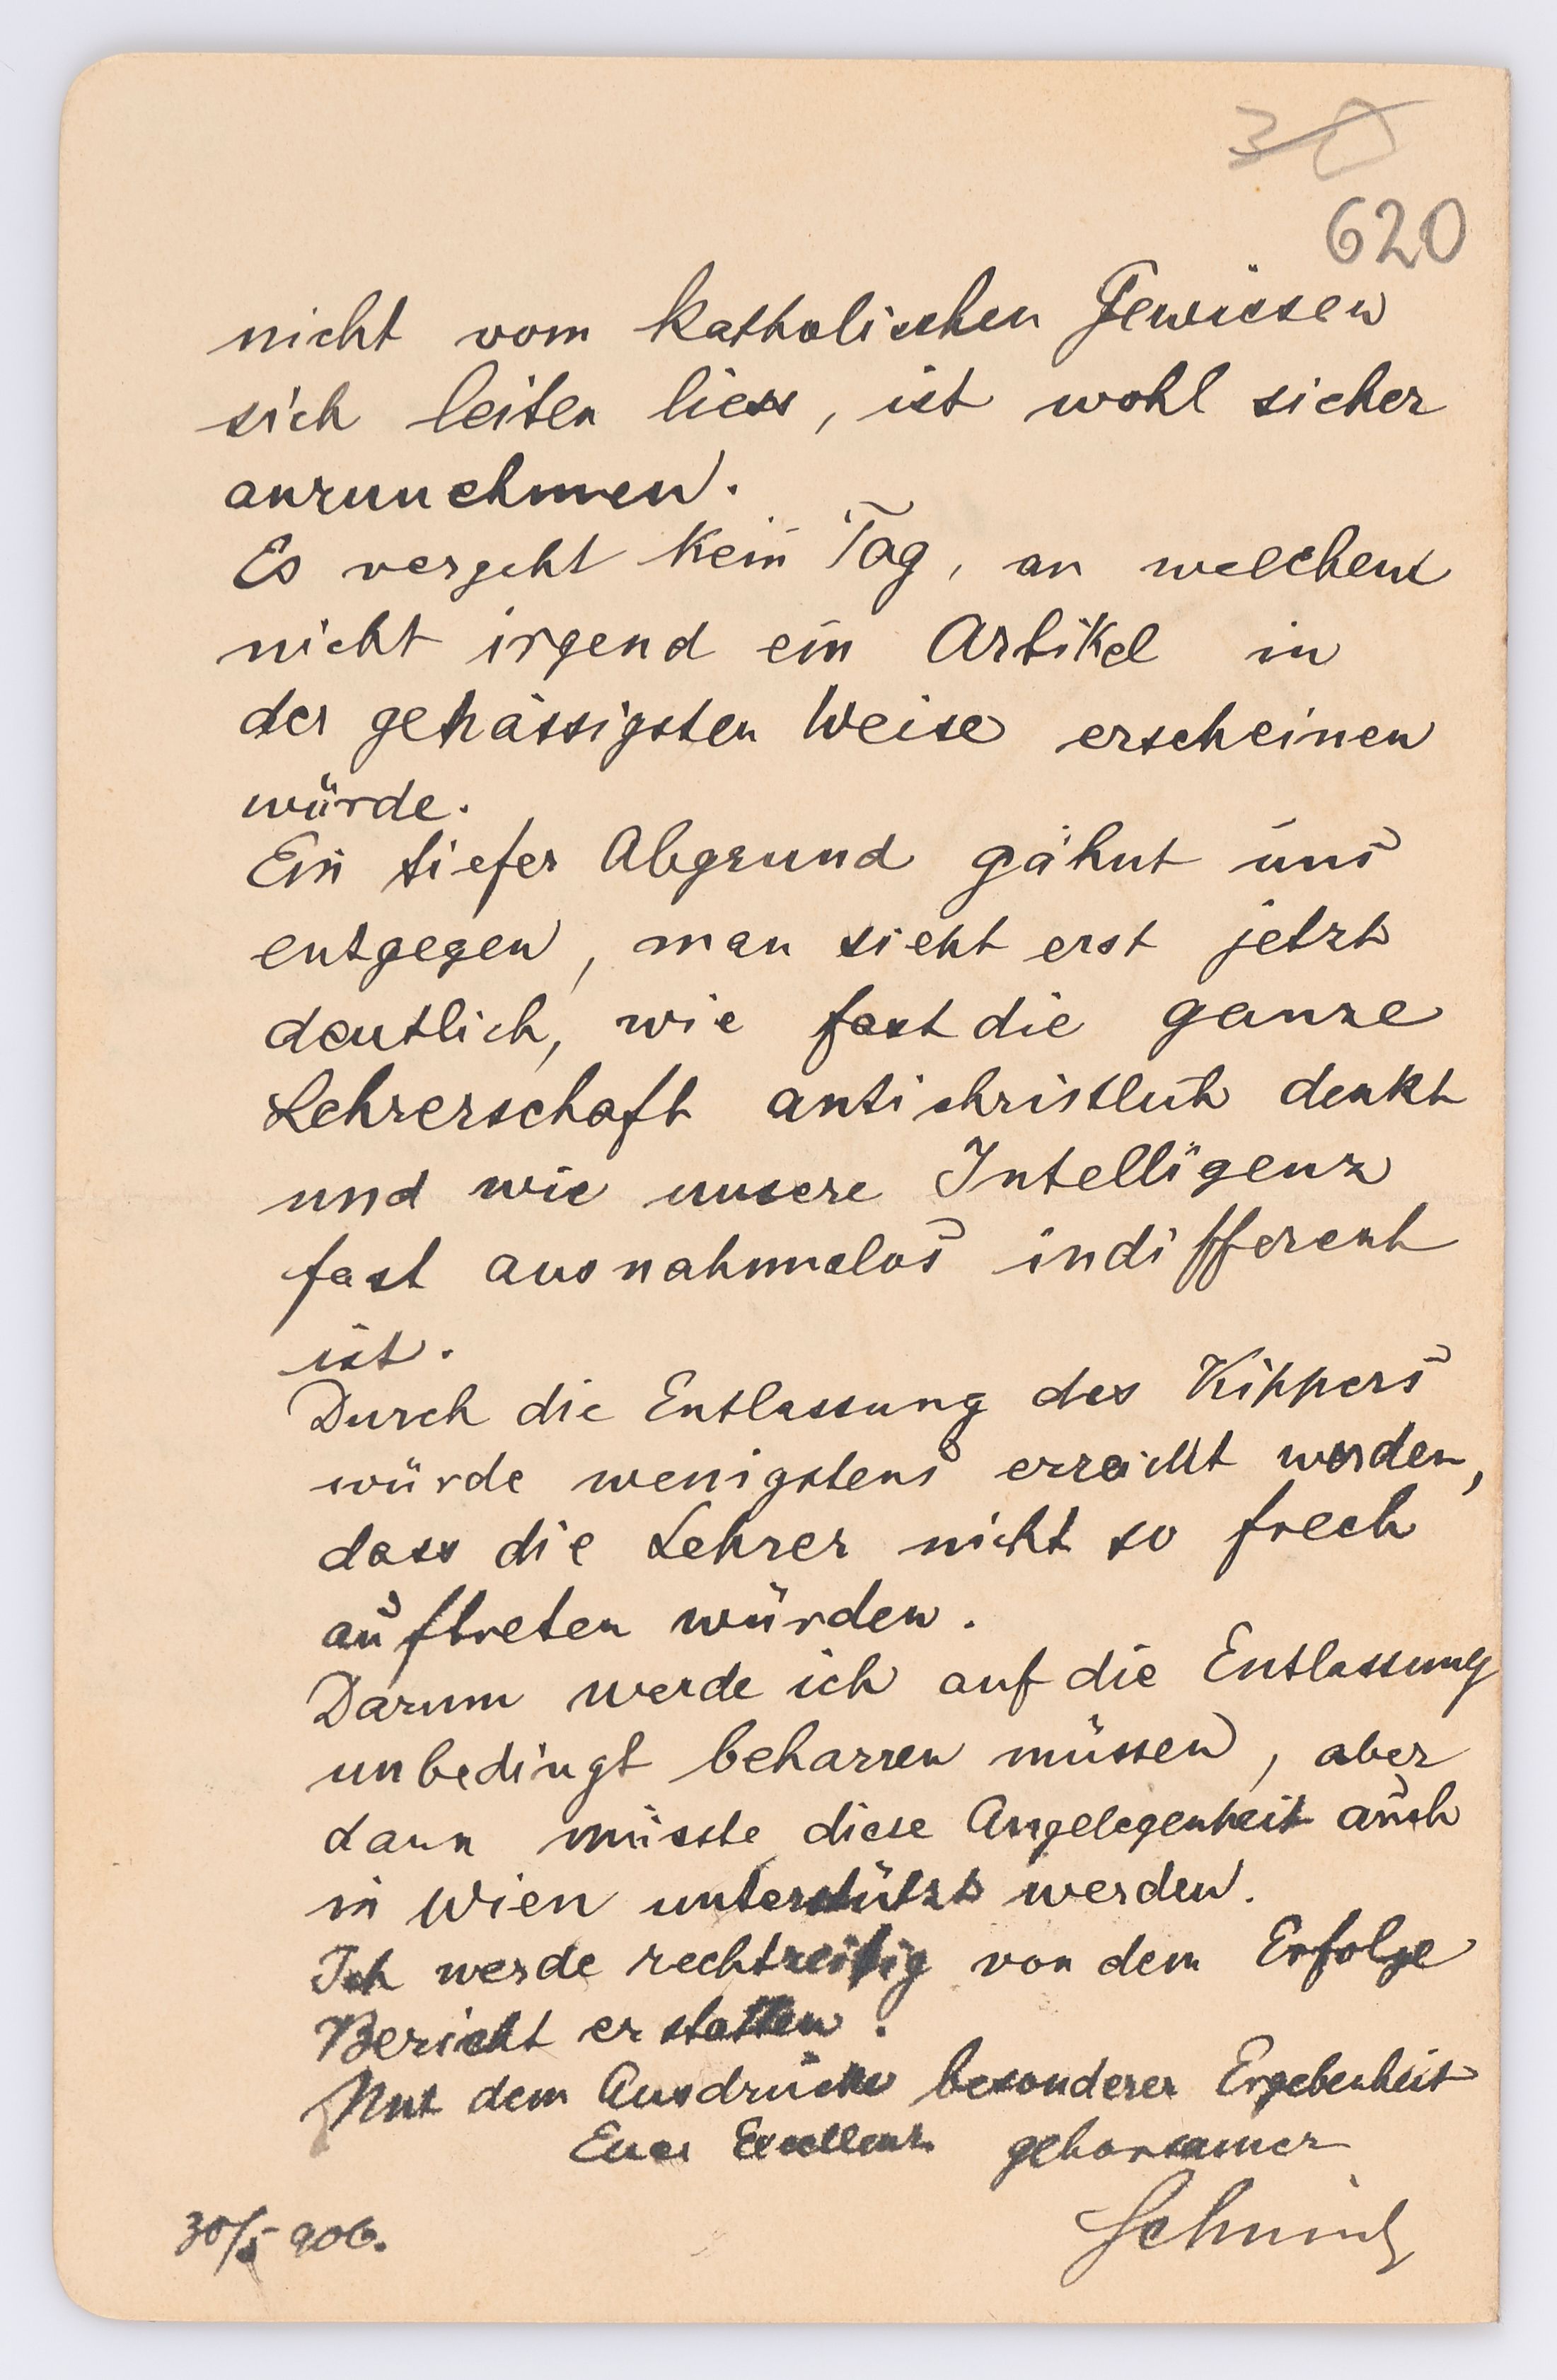 30
620
nicht vom katholischen Gewissen
sich leiten liess, ist wohl sicher
anzunehmen.
Es vergeht kein Tag, an welchem
nicht irgend ein Artikel in
der gehässigsten Weise erscheinen
würde.
Ein tiefer Abgrund gähnt uns
entgegen, man sieht erst jetzt
deutlich, wie fast die ganze
Lehrerschaft antichristlich denkt
und wie unsere Intelligenz
fast ausnahmslos indifferent
ist.
Durch die Entlassung des Kippers
würde wenigstens erreicht werden,
dass die Lehrer nicht so frech
auftreten würden.
Darum werde ich auf die Entlassung
unbedingt beharren müssen, aber
dann müsste diese Angelegenheit auch
in Wien unterstützt werden.
Ich werde rechtzeitig von dem Erfolge
Bericht erstatten.
Mit dem Ausdrucke besonderer Ergebenheit
Euer Excellenz gehorsamer
Schmid
30/5 906.